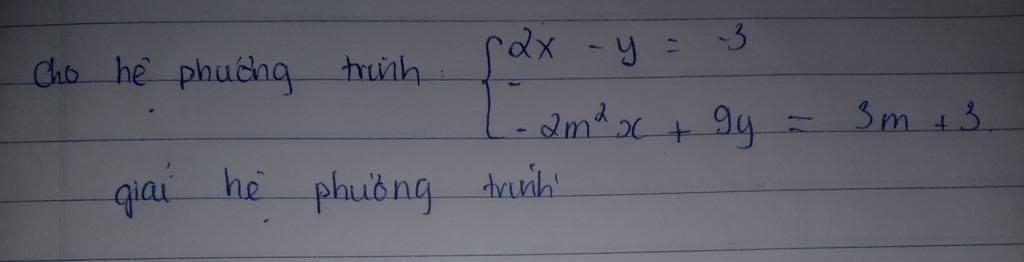 Cho hệ phương trình : { 2x - y = -3
- 2m²x + 9y = 3m + 3.
giải hệ phương trình